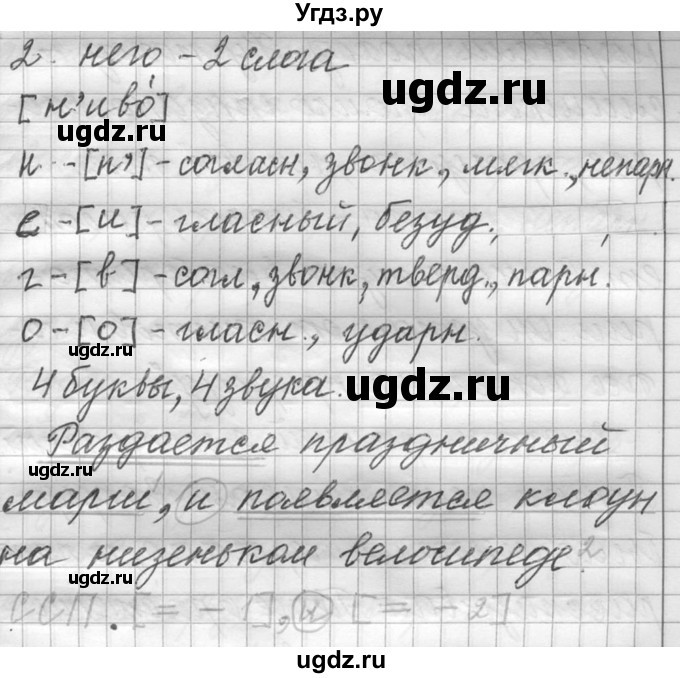 Угдз.ру
2. него - 2 слога
ugdz.ru
[н'иво́]
ugdz.ru
н - [н'] - согласн, звонк., мягк., непарн.
е - [и] - гласный, безуд.,
г - [в] - согл, звонк, тверд., парн.
о - [о] - гласн., ударн.
ugdz.ru
4 буквы, 4 звука.
ugdz.ru
Раздается праздничный
ugdz.ru
марш, и появляется клоун
на низеньком велосипеде 2
ugdz.ru
ССП. [= - 1], и [= - 2]
ugdz.ru